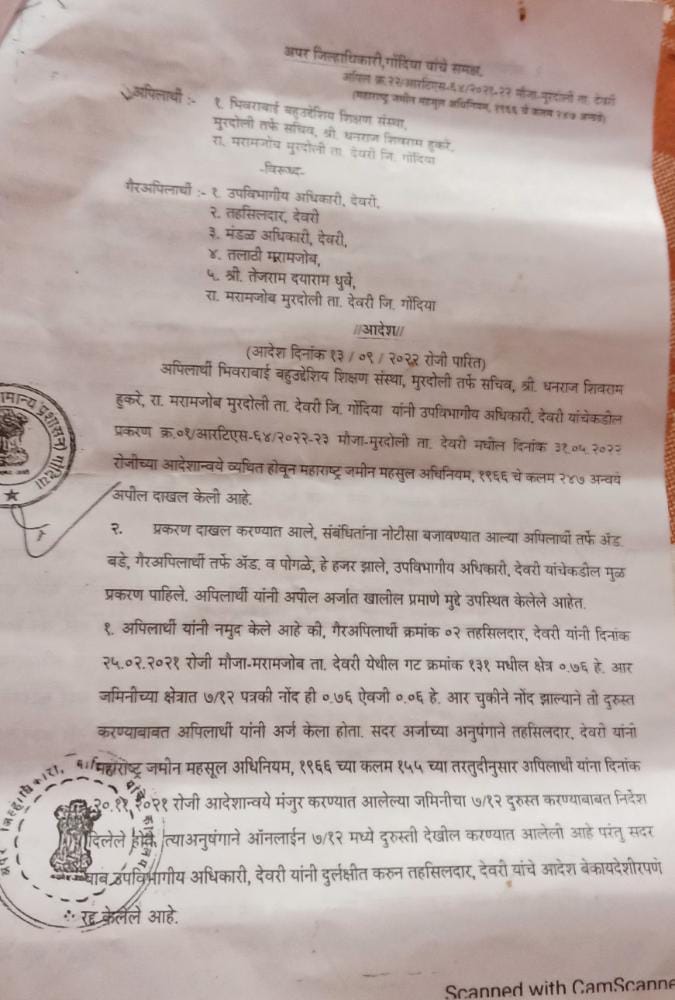 अपर जिल्हाधिकारी,गोंदिया यांचे समक्ष.
अपिल क्र.२२/आरटिएस-६४/२०२१-२२ मौजा-मुरदोली ता. देवरी
(महाराष्ट्र जमीन महसुल अधिनियम, १९६६ चे कलम २४७ अन्वये)
अपिलार्थी :- १. भिवराबाई बहुउद्देशिय शिक्षण संस्था,
मुरदोली तर्फे सचिव, श्री. धनराज शिवराम हुकरे,
रा. मरामजोब मुरदोली ता. देवरी जि. गोंदिया
-विरूध्द-
गैरअपिलार्थी :- १. उपविभागीय अधिकारी, देवरी,
२. तहसिलदार, देवरी
३. मंडळ अधिकारी, देवरी,
४. तलाठी मरामजोब,
५. श्री. तेजराम दयाराम धुर्वे,
रा. मरामजोब मुरदोली ता. देवरी जि. गोंदिया
//आदेश//
(आदेश दिनांक १३ / ०९ / २०२२ रोजी पारित)
अपिलार्थी भिवराबाई बहुउद्देशिय शिक्षण संस्था, मुरदोली तर्फे सचिव, श्री. धनराज शिवराम
हुकरे, रा. मरामजोब मुरदोली ता. देवरी जि. गोंदिया यांनी उपविभागीय अधिकारी, देवरी यांचेकडील
प्रकरण क्र.०१/आरटिएस-६४/२०२२-२३ मौजा-मुरदोली ता. देवरी मधील दिनांक ३१.०५.२०२२
रोजीच्या आदेशान्वये व्यथित होवून महाराष्ट्र जमीन महसुल अधिनियम, १९६६ चे कलम २४७ अन्वये
अपील दाखल केली आहे.
२. प्रकरण दाखल करण्यात आले, संबंधितांना नोटीसा बजावण्यात आल्या अपिलार्थी तर्फे ॲड.
बडे, गैरअपिलार्थी तर्फे ॲड. व पोगळे, हे हजर झाले, उपविभागीय अधिकारी, देवरी यांचेकडील मुळ
प्रकरण पाहिले. अपिलार्थी यांनी अपील अर्जात खालील प्रमाणे मुद्दे उपस्थित केलेले आहेत.
१. अपिलार्थी यांनी नमुद केले आहे की, गैरअपिलार्थी क्रमांक ०२ तहसिलदार, देवरी यांनी दिनांक
२५.०२.२०२१ रोजी मौजा-मरामजोब ता. देवरी येथील गट क्रमांक १३१ मधील क्षेत्र ०.७६ हे. आर
जमिनीच्या क्षेत्रात ७/१२ पत्रकी नोंद ही ०.७६ ऐवजी ०.०६ हे. आर चुकीने नोंद झाल्याने ती दुरुस्त
करण्याबाबत अपिलार्थी यांनी अर्ज केला होता. सदर अर्जाच्या अनुषंगाने तहसिलदार, देवरी यांनी
महाराष्ट्र जमीन महसूल अधिनियम, १९६६ च्या कलम १५५ च्या तरतुदीनुसार अपिलार्थी यांना दिनांक
२०.११.२०२१ रोजी आदेशान्वये मंजुर करण्यात आलेल्या जमिनीचा ७/१२ दुरुस्त करण्याबाबत निर्देश
दिलेले होते त्याअनुषंगाने ऑनलाईन ७/१२ मध्ये दुरुस्ती देखील करण्यात आलेली आहे परंतु सदर
बाब उपविभागीय अधिकारी, देवरी यांनी दुर्लक्षीत करुन तहसिलदार, देवरी यांचे आदेश बेकायदेशीरपणे
रद्द केलेले आहे.
Scanned with CamScanne